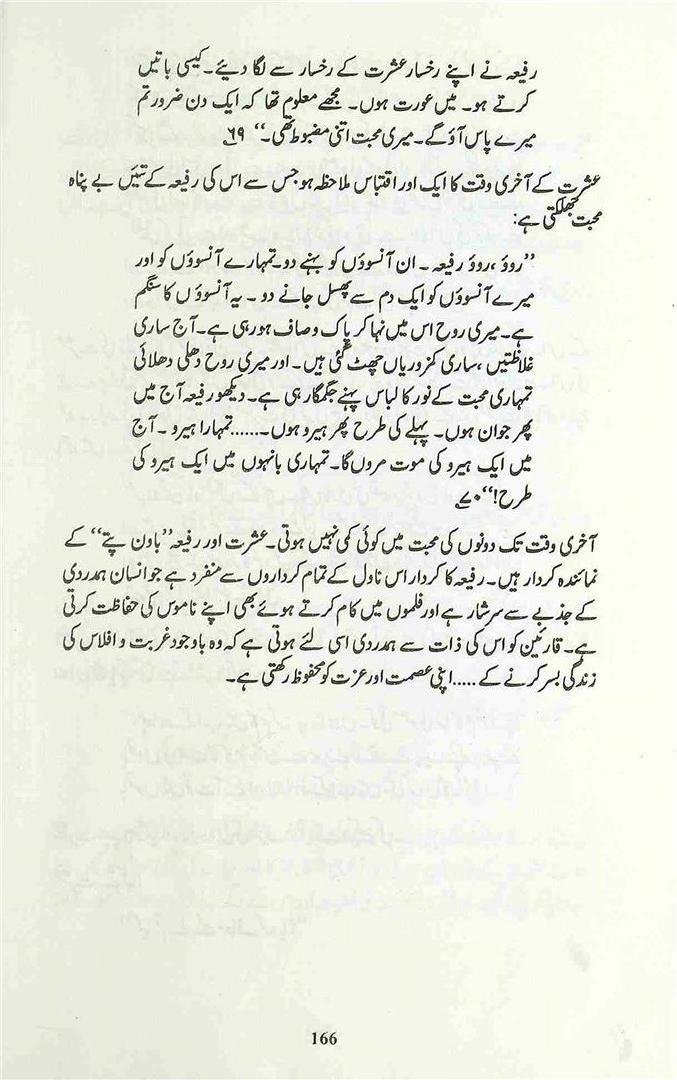 رفیعہ نے اپنے رخسار عشرت کے رخسار سے لگا دیئے۔ کیسی باتیں
کرتے ہو۔ میں عورت ہوں۔ مجھے معلوم تھا کہ ایک دن ضرور تم
میرے پاس آؤ گے۔ میری محبت اتنی مضبوط تھی۔“ ۶۹؎
عشرت کے آخری وقت کا ایک اور اقتباس ملاحظہ ہو جس سے اس کی رفیعہ کے تئیں بے پناہ
محبت جھلکتی ہے:
”روؤ ،روؤ رفیعہ ۔ ان آنسوؤں کو بہنے دو۔تمہارے آنسوؤں کو اور
میرے آنسوؤں کو ایک دم سے پھسل جانے دو ۔ یہ آنسوؤ ں کا سنگم
ہے۔میری روح اس میں نہا کر پاک و صاف ہو رہی ہے۔ آج ساری
غلاظتیں ،ساری کمزوریاں چھٹ گئی ہیں ۔ اور میری روح دھلی دھلائی
تمہاری محبت کے نور کا لباس پہنے جگمگا رہی ہے۔ دیکھو رفیعہ آج میں
پھر جوان ہوں۔ پہلے کی طرح پھر ہیرو ہوں ۔......تمہارا ہیرو ۔ آج
میں ایک ہیرو کی موت مروں گا۔ تمہاری بانہوں میں ایک ہیرو کی
طرح!“ ۷۰؎
آخری وقت تک دونوں کی محبت میں کوئی کمی نہیں ہوتی۔ عشرت اور رفیعہ ”باون پتے“ کے
نمائندہ کردار ہیں۔ رفیعہ کا کردار اس ناول کے تمام کرداروں سے منفرد ہے جو انسان ہمدردی
کے جذبے سے سرشار ہے اور فلموں میں کام کرتے ہوئے بھی اپنے ناموس کی حفاظت کرتی
ہے۔ قارئین کو اس کی ذات سے ہمدردی اسی لئے ہوتی ہے کہ وہ باوجود غربت و افلاس کی
زندگی بسر کرنے کے ..... اپنی عصمت اور عزت کو محفوظ رکھتی ہے۔
166